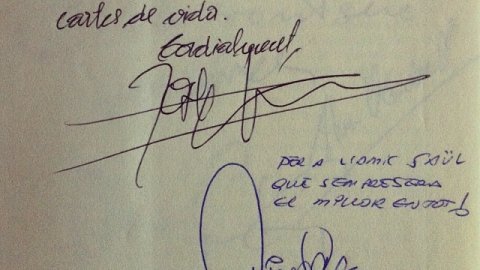 cartes de vida.
Cordialment,
PER A L'AMIC SAÜL
QUE SEMPRE SERA
EL MILLOR EN TOT!